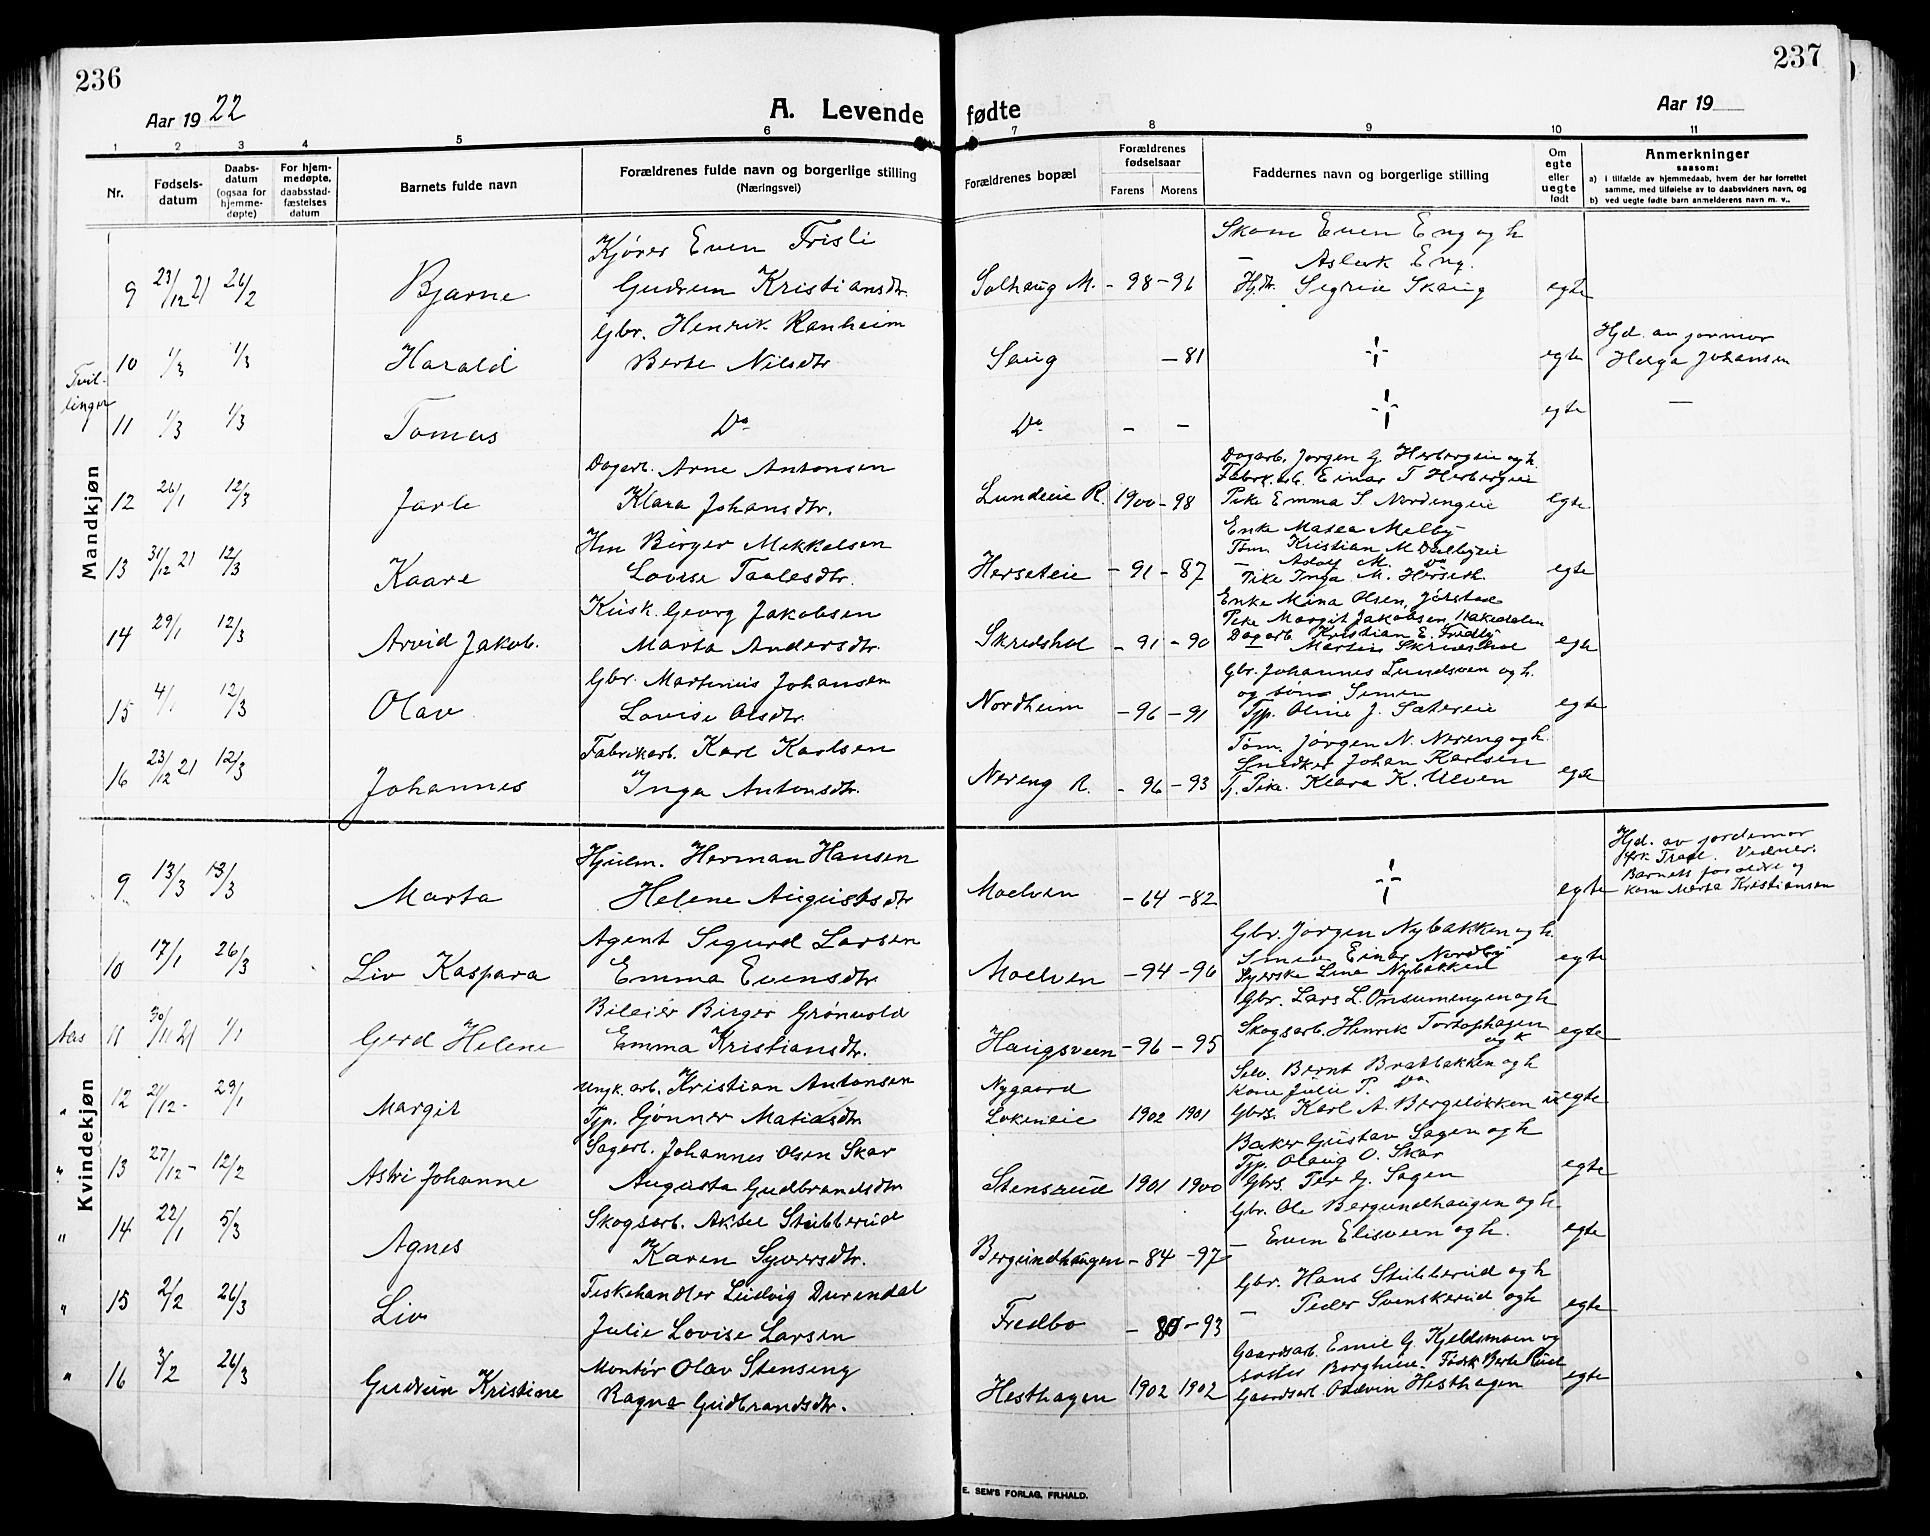 236
237
Aar 1922
A. Levende fødte
Aar 19
1 2 3 4 5 6 7 8 9 10 11
Nr.
Fødsels-
datum
Daabs-
datum
(ogsaa for
hjemme-
døpte)
For hjem-
medøpte,
daabsstad-
fæstelses
datum
Barnets fulde navn
Forældrenes fulde navn og borgerlige stilling
(Næringsvei)
Forældrenes bopæl
Forældrenes
fødselsaar
Farens
Morens
Faddernes navn og borgerlige stilling
Om
egte
eller
uegte
født
Anmerkninger
saasom:
a) i tilfælde av hjemmedaab, hvem der har forrettet
samme, med tilføielse av to daabsvidners navn, og
b) ved uegte fødte barn anmelderens navn m. v..
Mandkjøn
9 23/12 21 26/2 Bjarne
Kjører Even Frisli
Gudrun Kristiansdtr.
Solhaug M. - 98 - 96
Skom Even Eng og h
— Aslak Eng.
Hjdtr. Sigrun Skaug
egte
Tvil-
linger
10 1/3 1/3 Harald
Gbr. Henrik Ranheim
Berte Nilsdtr
Saug - 81
egte
Hjd. av jormor
Helga Johansen
11 1/3 1/3 Tomas
Do
Do - -
egte
—
12 26/1 12/3 Jarle
Dagarb. Arne Antonsen
Klara Johansdtr.
Lundeie R. 1900 - 98
Dagarb. Jørgen G Herbergeie og h.
Fabrk.arb. Einar T Herbergeie
Pike Emma S Nordengeie
egte
13 31/12 21 12/3 Kaare
Hm Birger Mikkelsen
Lovise Taalesdtr.
Herseteie - 91 - 87
Enke Masea Melby
Tøm. Kristian M Dælbyeie
— Adolf M. Do
Pike Inga M. Herseth
egte
14 29/1 12/3 Arvid Jakob.
Kusk. Georg Jakobsen
Marta Andersdtr.
Skredshol - 91 - 90
Enke Mina Olsen, Jørstad
Pike Margit Jakobsen, Hakedalen
Dagarb Kristian E. Fridly
— Martin Skredshol
egte
15 4/1 12/3 Olav
Gbr. Martinius Johansen
Lovise Olsdtr.
Nordheim - 96 - 91
Gbr. Johannes Lundsven og h.
og søn Simen
Tjp. Oline J. Sætereie
egte
16 23/12 21 12/3 Johannes
Fabrikarb. Karl Karlsen
Inga Antonsdtr.
Nereng R. - 96 - 93
Tøm. Jørgen N. Nereng og h.
Snedker Johan Karlsen
Tj. Pike. Klara K. Ulven
egte
Kvindekjøn
9 13/3 13/3 Marta
Hjulm. Herman Hansen
Helene Augustsdtr
Moelven - 64 - 82
egte
Hjd. av jordemor
frk. Trade. Vidner.
Barnets foreldre og
kone Marta Kristiansen
10 17/1 26/3 Liv Kaspara
Agent Sigurd Larsen
Emma Evensdtr.
Moelven - 94 - 96
Gbr. Jørgen Nybakken og h.
Smed Einar Nordby
Syerske Lina Nybakken
egte
Aas 11 30/11 21 1/1 Gerd Helene
Bileier Birger Grønvold
Emma Kristiansdtr.
Haugsveen - 96 - 95
Gbr. Lars L. Onsumengen og h
Skogsarb. Henrik Tortophagen
og h
egte
" 12 21/12 - 29/1 Margit
Ungk. arb. Kristian Antonsen
Tjp. Gønner Matiasdtr.
Nygaard
Løkeneie 1902 1901
Selv. Bernt Bratbakken og h
Kone Julie P. Do
Gbrs. Karl A. Bergeløkken
uegte
" 13 27/12 - 12/2 Astri Johanne
Sagarb. Johannes Olsen Skar
Augusta Gudbrandsdtr
Stensrud 1901 1900
Baker Gustav Sagen og h
Tjp. Olaug O. Skar
Gbrs. Per G. Sagen
egte
" 14 22/1 5/3 Agnes
Skogsarb. Aksel Stubberud
Karen Syversdtr.
Bergundhaugen - 84 - 97
Gbr. Ole Bergundhaugen og h.
— Even Elisveen og h.
egte
" 15 2/2 26/3 Liv
Fiskehandler Ludvig Durendal
Julie Lovise Larsen
Fredbo - 80 - 93
Gbr. Hans Stubberud og h
— Peder Svenskerud og h
egte
" 16 3/2 26/3 Gudrun Kristine
Montør Olav Stenseng
Ragna Gudbrandsdtr.
Hesthagen 1902 1902
Gaardsarb. Emil G. Kjeldsmoen og
søster Borghild. Berte Rud
Gaardsarb. Oddvin Hesthagen
egte
E. SEM'S FORLAG, FR.HALD.